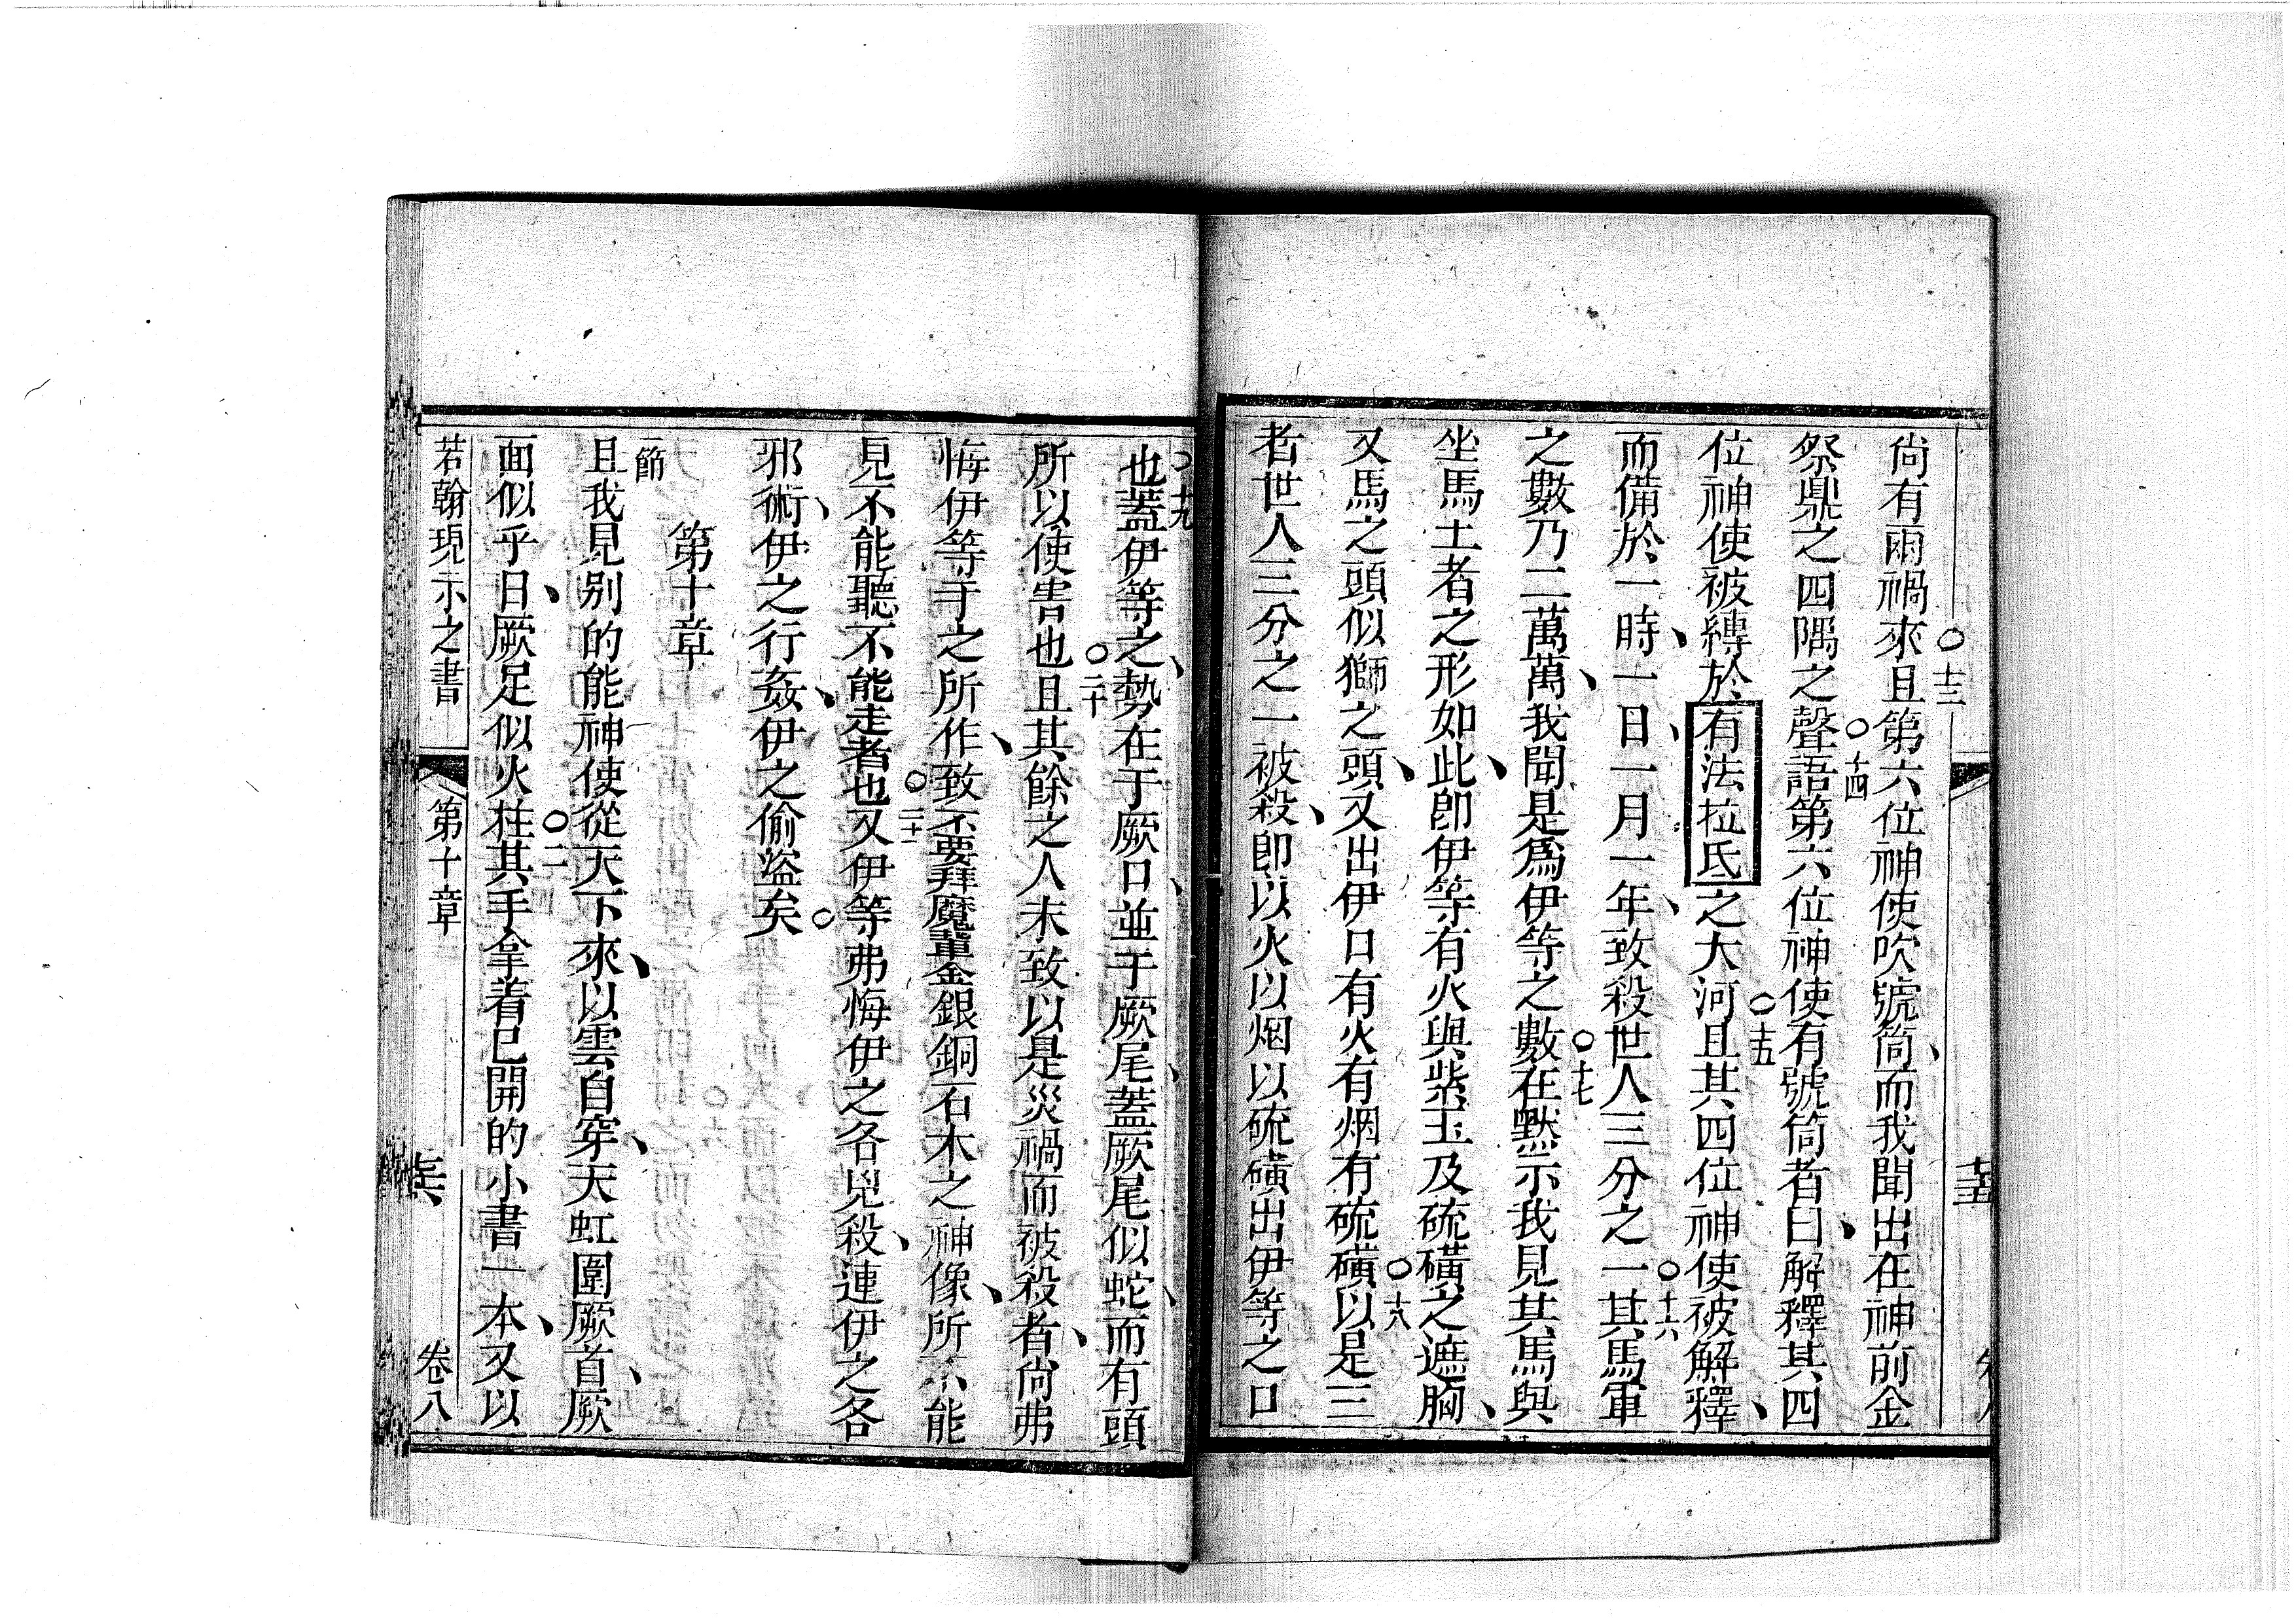 尙有兩禍來且第六位神使吹號筒、而我聞出在神前金
○十三
祭鼎之四隅之聲語第六位神使有號筒者曰、解釋其四
○十四
位神使被縛於有法拉氐之大河且其四位神使被解釋、
○十五
而備於一時、一日、一月一年、致殺世人三分之一其馬軍
○十六
之數乃二萬萬、我聞是爲伊等之數在默示我見其馬與
○十七
坐馬士者之形如此、卽伊等有火與紫玉及硫磺之遮胸、
又馬之頭似獅之頭、又出伊口有火有烟有硫磺以是三
○十八
者世人三分之一被殺、卽以火以烟以硫磺出伊等之口
十五
也蓋伊等之、勢在于厥口、並于厥尾、蓋厥尾似蛇、而有頭
○十九
所以使害也且其餘之人未致以是災禍而被殺者、尙弗
○二十
悔伊等于之所作、致不要拜魔輩金銀銅石木之神像、所不能
見不能聽不能走者也又伊等弗悔伊之各兇殺、連伊之各
○二十一
邪術、伊之行姦、伊之偷盜矣○
第十章
一節
且我見別的能神使從天下來、以雲自穿、天虹圍厥首、厥
面似乎日、厥足似火柱其手拿着已開的小書一本、又以
○二
若翰現示之書 第十章 十六 卷八